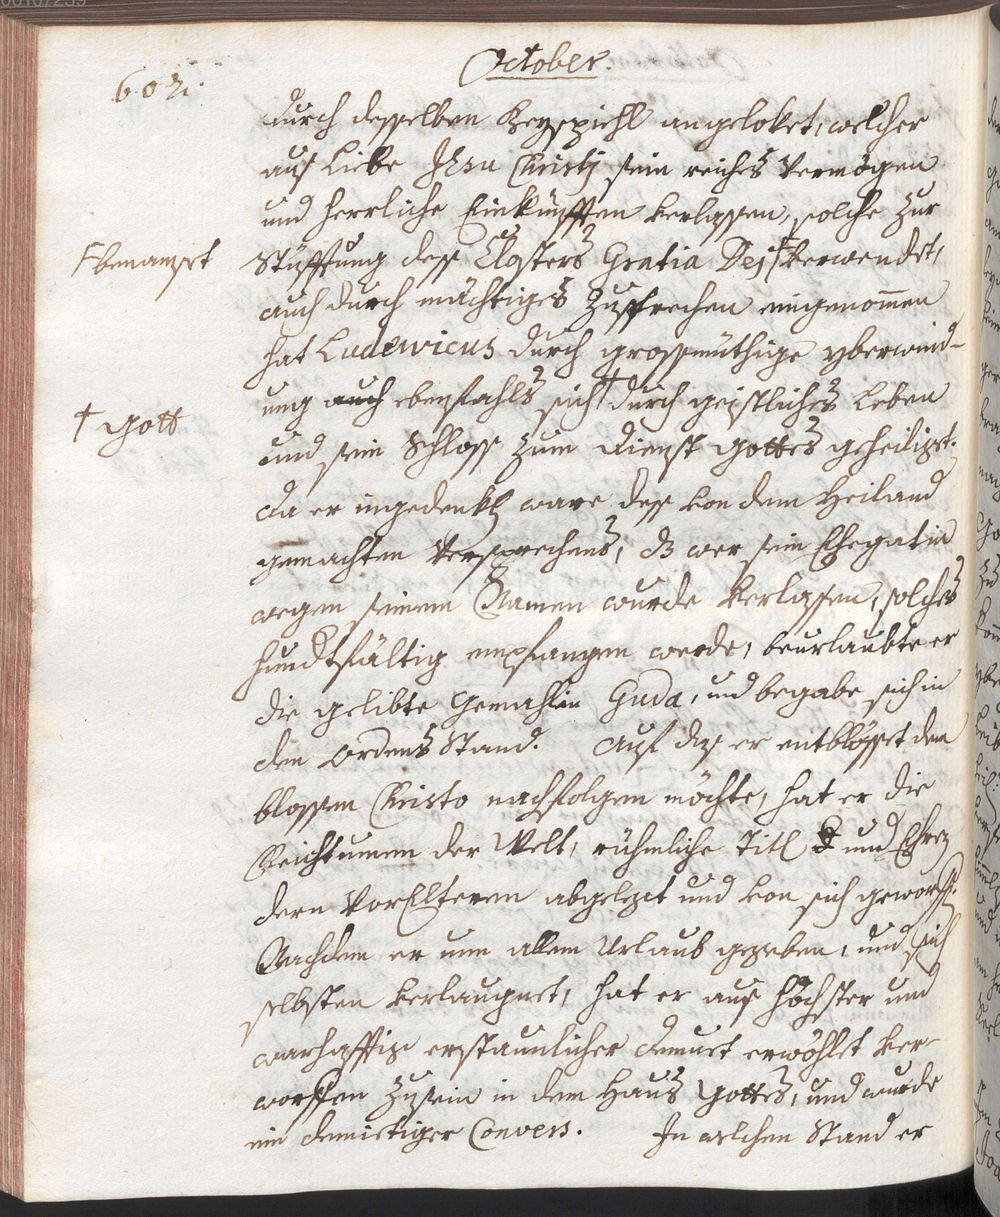 October.
602.
durch desselben Beyspiehl angeloket, welcher
aus Liebe Jesu Christj sein reiches Vermögen
und herrliche Einkünfften verlassen, solche zur
Stüfftung dess Closters Gratia Dej Ⱶ verwendet,
Ⱶ benamset
auch durch mächtiges Zusprechen eingenommen
hat Ludewicus durch grossmüthige yberwind-
ung auch ebenfahls sich † durch geistliches Leben
† Gott
und sein Schloss zum Dienst Gottes geheiliget.
Da er ingedenkh ware dess von dem Heiland
gemachten Versprechens, dz wer sein Ehegatin
wegen seinem Namen wurde verlassen, solches
hundtfältig empfangen werde, beurlaubte er
die gelibte Gemahlin Guda, und begabe sich in
den Ordens Stand. Auf dz er entblösset dem
blossen Christo nachfolgen möchte, hat er die
Reichtumen der Welt, rühmliche Titl und Ehren
dern VorElteren abgelegt und von sich geworff.
Nachdem er nun allem Urlaub gegeben, und sich
selbsten verlaugnet, hat er aus höchster und
warhafftig erstaunlicher Demuet erwöhlt ver-
worffen zu sein in dem Haus Gottes, und wurde
ein demietiger Convers. In welchen Stand er